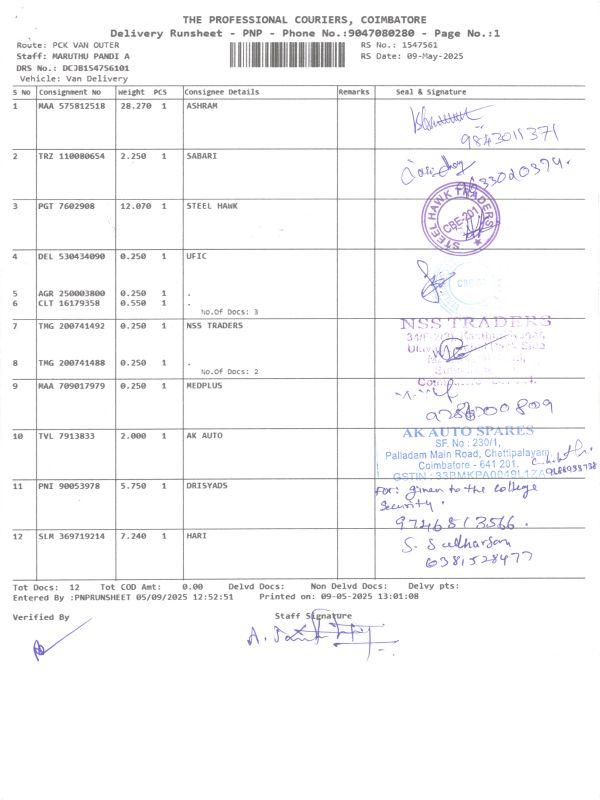 THE PROFESSIONAL COURIERS, COIMBATORE
Delivery Runsheet - PNP - Phone No.:9047080280 - Page No.:1
Route: PCK VAN OUTER RS No.: 1547561
Staff: MARUTHU PANDI A RS Date: 09-May-2025
DRS No.: DCJB154756101
Vehicle: Van Delivery
S No Consignment No Weight PCS Consignee Details Remarks Seal & Signature
1 MAA 575812518 28.270 1 ASHRAM
9843011371
2 TRZ 110080654 2.250 1 SABARI
3 PGT 7602908 12.070 1 STEEL HAWK
STEEL HAWK TRADERS
CBE-201
4 DEL 530434090 0.250 1 UFIC
5 AGR 250003800 0.250 1 .
6 CLT 16179358 0.550 1 .
No.Of Docs: 3
7 TMG 200741492 0.250 1 NSS TRADERS NSS TRADERS
8 TMG 200741488 0.250 1 .
No.Of Docs: 2
9 MAA 709017979 0.250 1 MEDPLUS
10 TVL 7913833 2.000 1 AK AUTO AK AUTO SPARES
SF. No : 230/1,
Palladam Main Road, Chettipalayam,
Coimbatore - 641 201.
11 PNI 90053978 5.750 1 DRISYADS For: given to the college
Security.
9746813566.
12 SLM 369719214 7.240 1 HARI S. Sudharsan
6381528477
Tot Docs: 12 Tot COD Amt: 0.00 Delvd Docs: Non Delvd Docs: Delvy pts:
Entered By :PNPRUNSHEET 05/09/2025 12:52:51 Printed on: 09-05-2025 13:01:08
Verified By Staff Signature